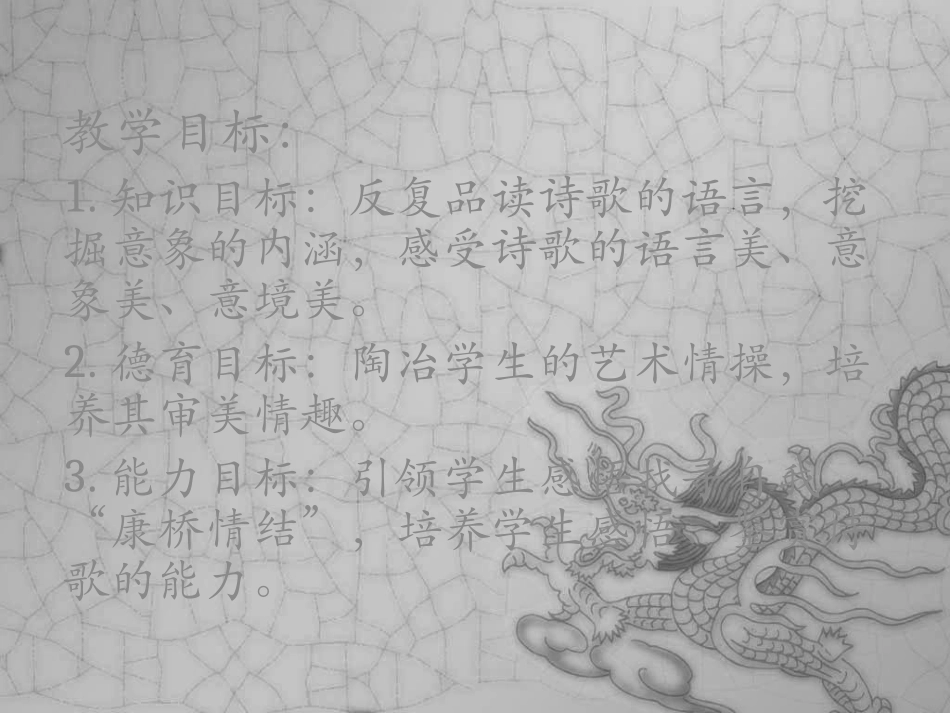 教学目标：
1. 知识目标：反复品读诗歌的语言，挖
掘意象的内涵，感受诗歌的语言美、意
象美、意境美。
2. 德育目标：陶冶学生的艺术情操，培
养其审美情趣。
3. 能力目标：引领学生感
“康桥情结”，培养学生感悟
歌的能力。